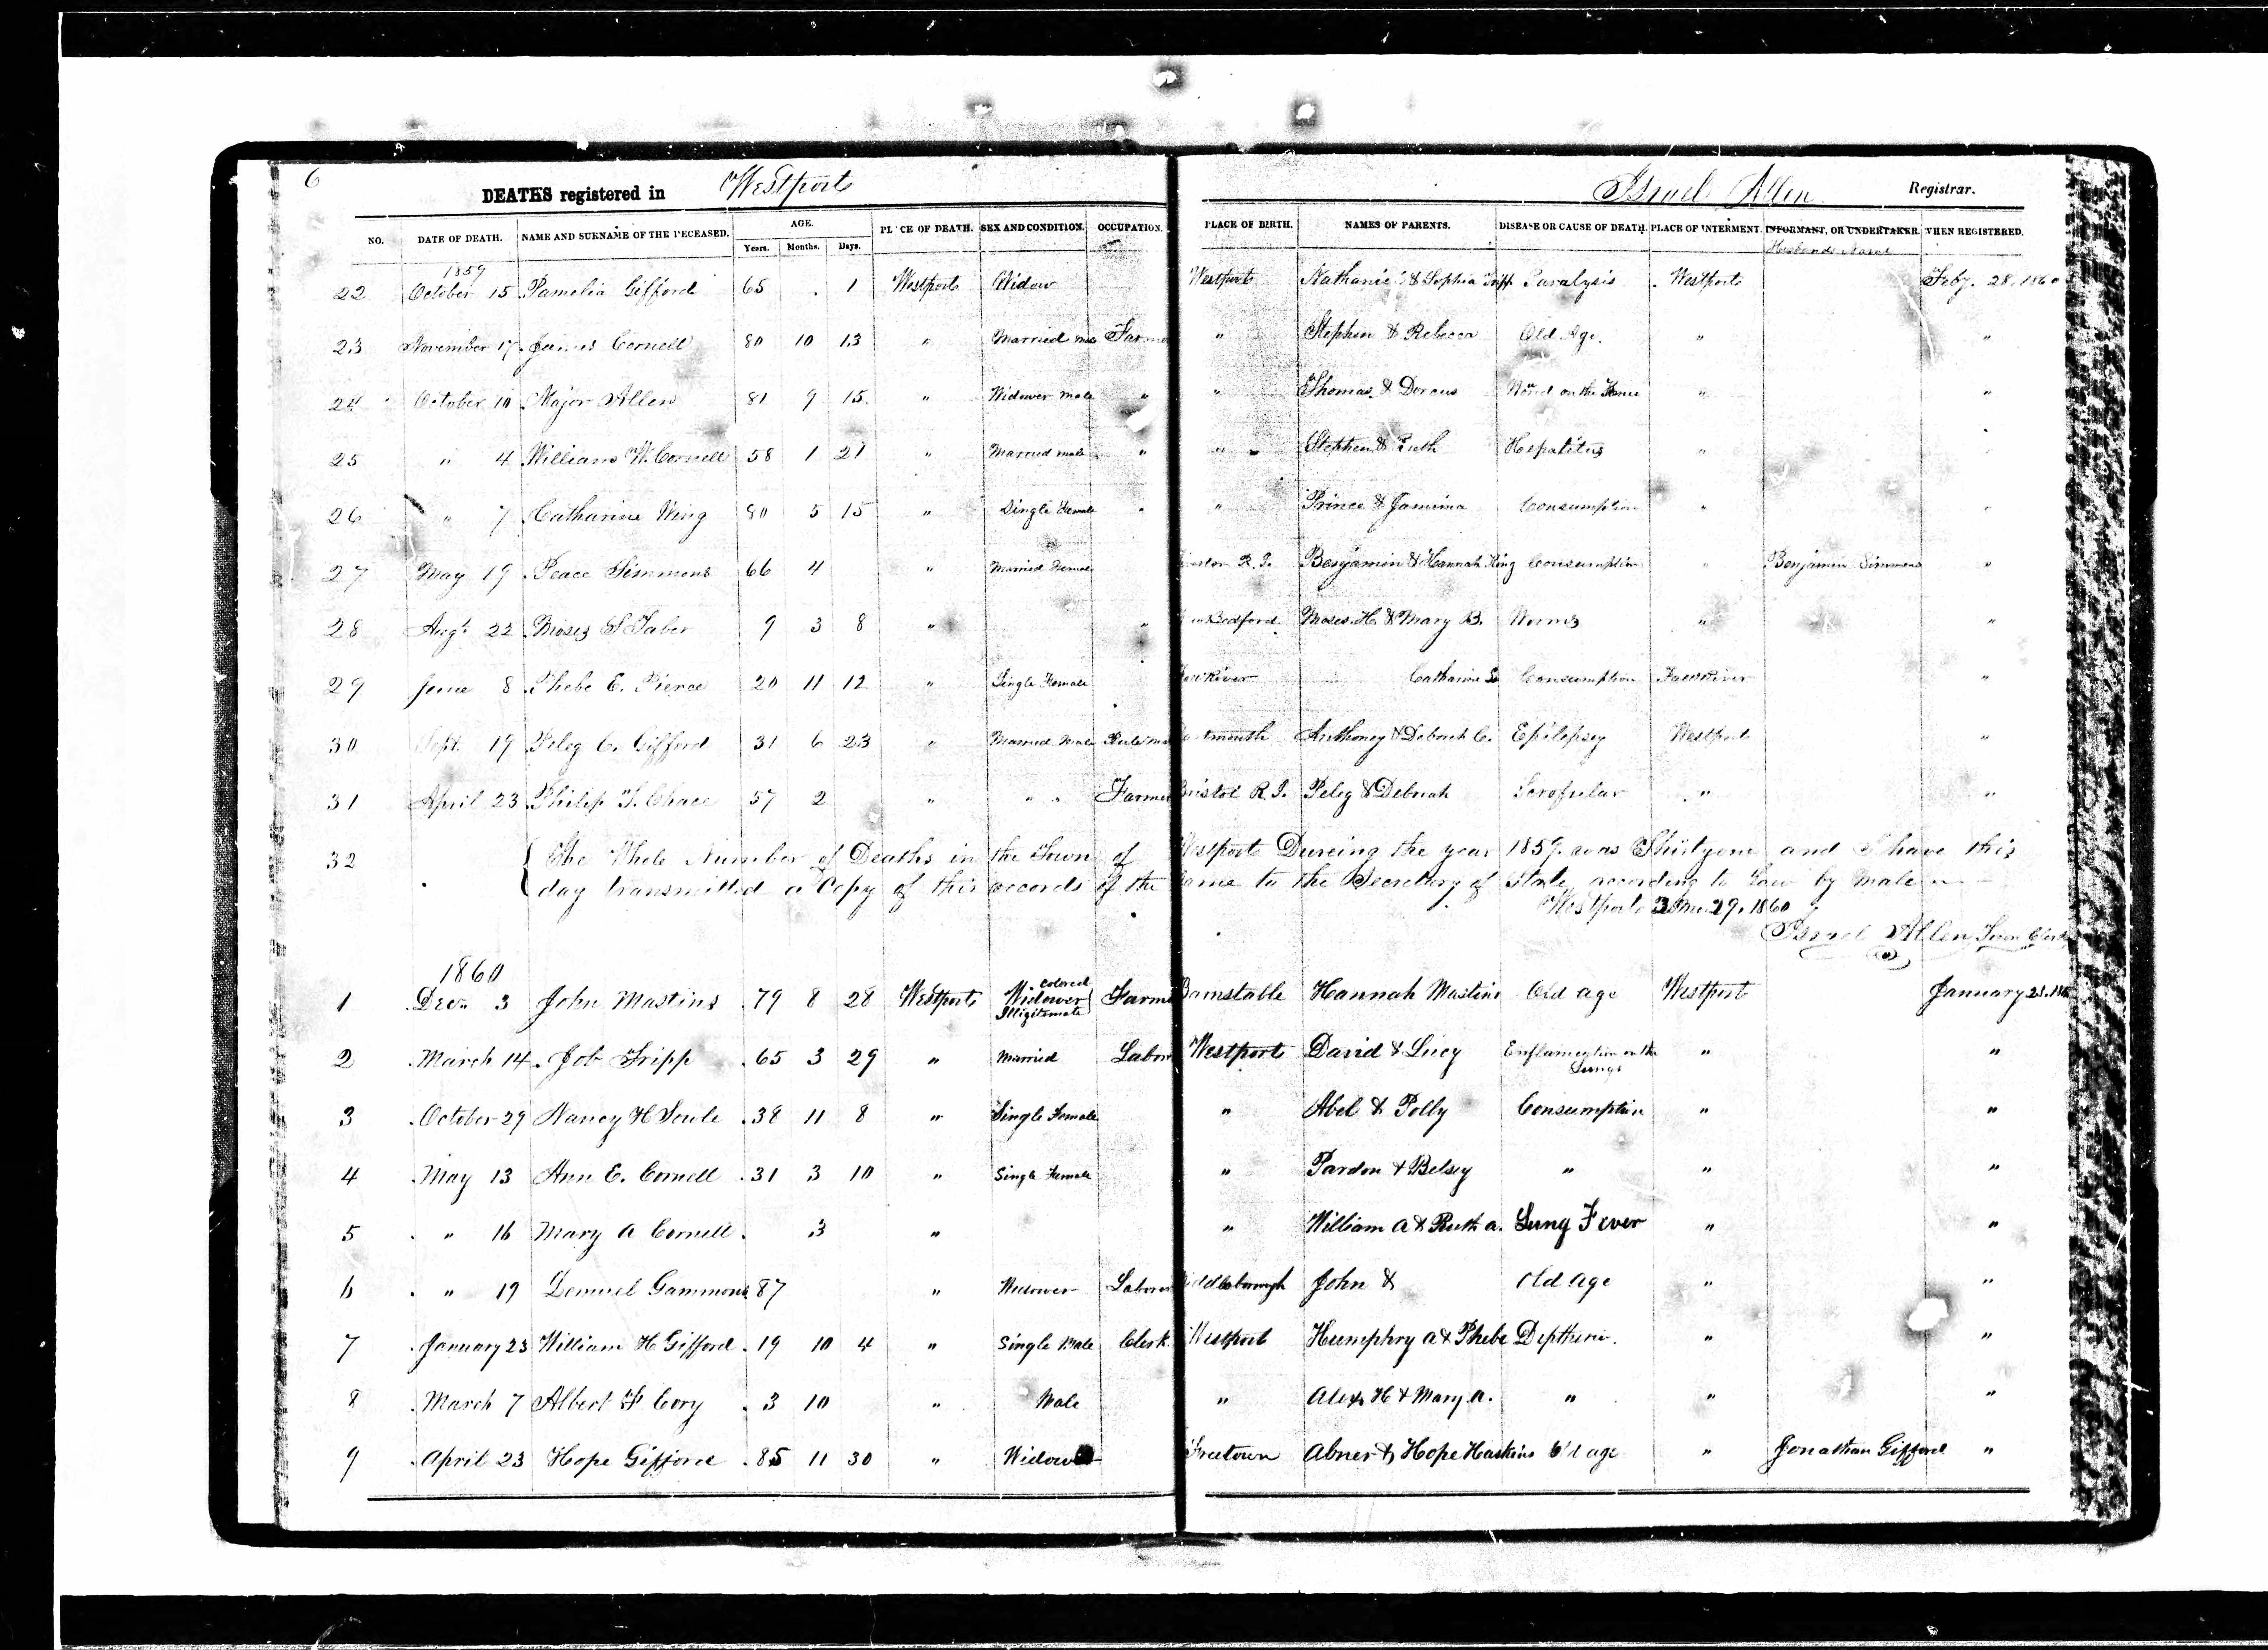 6
DEATHS registered in Westport Israel Allen Registrar.
NO. DATE OF DEATH. NAME AND SURNAME OF THE DECEASED. AGE. Years. Months. Days. PLACE OF DEATH. SEX AND CONDITION. OCCUPATION. PLACE OF BIRTH. NAMES OF PARENTS. DISEASE OR CAUSE OF DEATH. PLACE OF INTERMENT. INFORMANT, OR UNDERTAKER. WHEN REGISTERED.
Husbands Name
1859
22 October 15 Pamelia Gifford 65 1 Westport Widow Westport Nathaniel & Sophia Tripp Paralysis Westport Feby. 28, 1860
23 November 17 James Cornell 80 10 13 " Married male Farme " Stephen & Rebecca Old Age. " "
24 October 10 Major Allen 81 9 15 " Widower male " " Thomas & Dorcus on the " "
25 " 4 William W. Cornell 58 1 21 " Married male " " Stephen & Ruth Hepatitus "
26 " 7 Catharine Wing 80 5 15 " Single Female " " Prince & Jamima Consumption " "
27 May 19 Peace Simmons 66 4 " Married Female R. I. Benjamin & Hannah King Consumption " Benjamin Simmons "
28 Augt 22 Moses S Taber 9 3 8 " " Bedford Moses. H. & Mary B. Worms " "
29 June 8 Phebe E. Pierce 20 11 12 " Single Female River Catharine Consumption Fall River "
30 Sept. 19 Peleg C. Gifford 31 6 23 " Married Male artmouth Anthoney & Deborah C. Epilepsy Westport "
31 April 23 Philip T. Chace 57 2 " " " Farmer Bristol R. I. Peleg & Deborah Scrofular " "
32 The Whole Number of Deaths in the Town of Westport Dureing the year 1859. was Thirtyone and I have this
day transmitted a Copy of this records of the same to the Secretary of State according to Law by Male
Westport 29. 1860
Israel Allen Town Clerk
1860
colored
1 Decm 3 John Mastins 79 8 28 Westport Widower Farme Barnstable Hannah Mastins Old age Westport January 21. 186
Illigitemate
2 March 14 Job Tripp 65 3 29 " Married Labor Westport David & Lucy Enflamection on the " "
Lungs
3 October 29 Nancy H Soule 38 11 8 " Single Female " Abel & Polly Consumption " "
4 May 13 Ann E. Cornell 31 3 10 " Single Female " Pardon & Betsey " " "
5 " 16 Mary A Cornell 3 " " William A & Ruth a. Lung Fever " "
6 " 19 Lemuel Gammons 87 " Widower Labore iddleborough John & Old age " "
7 January 23 William H Gifford 19 10 4 " Single Male Clerk Westport Humphry A & Phebe Diptheria. " "
8 March 7 Albert F Cory 3 10 " Male " Alex H & Mary A. " " "
9 April 23 Hope Gifford 85 11 30 " Widow Freetown Abner & Hope Haskins Old age " Jonathan Gifford "